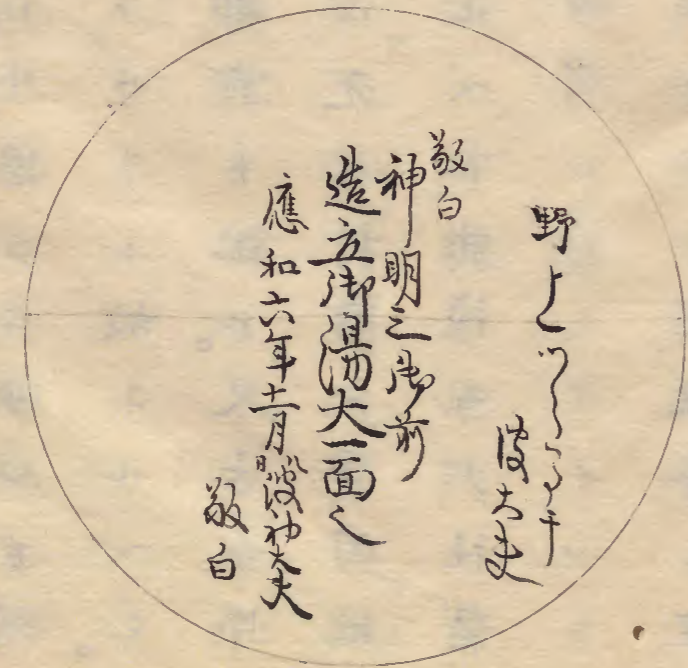 野上
大夫
敬白
神明之御前
造立御湯大一面之
應和六年十一月日 神大夫
敬白